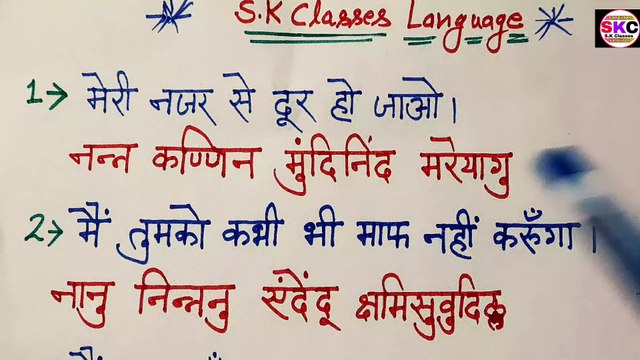 S.K Classes Language
SKC
S.K Classes
1→ मेरी नजर से दूर हो जाओ।
नन्त कण्णिन मुंदिनिंद मरेयागु
2→ मैं तुमको कभी भी माफ नहीं करूँगा।
नानु निन्ननु एंदेंदू क्षमिसुवुदिल्ल